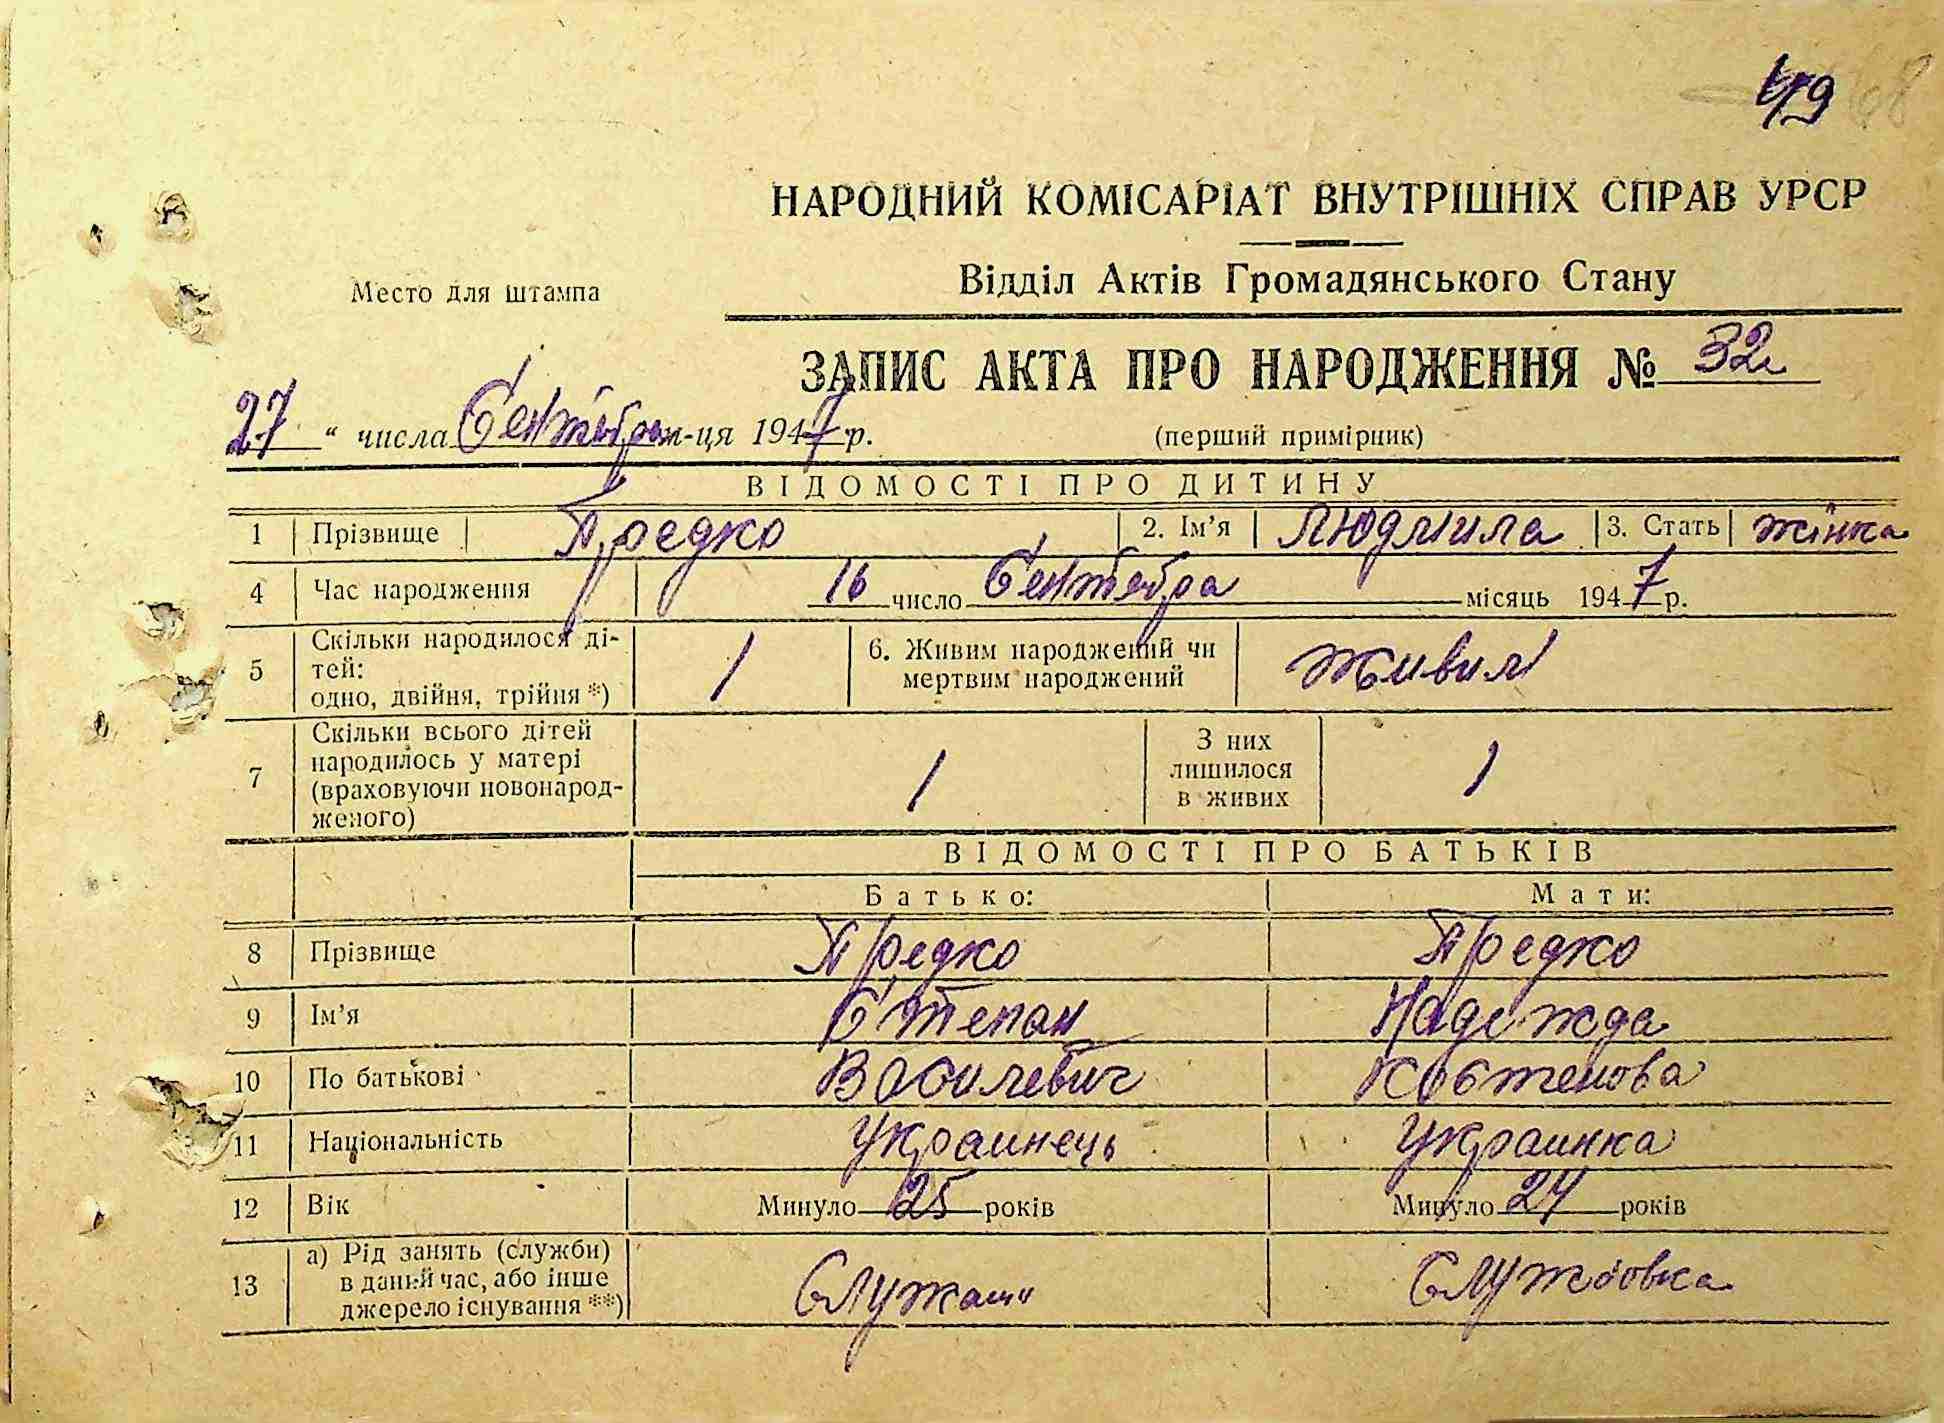 49
НАРОДНИЙ КОМІСАРІАТ ВНУТРІШНІХ СПРАВ УРСР
Место для штампа
Відділ Актів Громадянського Стану
ЗАПИС АКТА ПРО НАРОДЖЕННЯ № 32
27 " числа Сентября м-ця 1947 р.
(перший примірник)
ВІДОМОСТІ ПРО ДИТИНУ
1 Прізвище Предко 2. Ім'я Людмила 3. Стать жінка
4 Час народження 16 число Сентября місяць 1947 р.
5 Скільки народилося ді-
тей:
одно, двійня, трійня *) 1 6. Живим народжений чи
мертвим народжений живим
7 Скільки всього дітей
народилось у матері
(враховуючи новонарод-
женого) 1 З них
лишилося
в живих 1
ВІДОМОСТІ ПРО БАТЬКІВ
Батько: Мати:
8 Прізвище Предко Предко
9 Ім'я Степан Надежда
10 По батькові Василевич Костенова
11 Національність Украинець Украинка
12 Вік Минуло 25 років Минуло 24 років
13 а) Рід занять (служби)
в даний час, або інше
джерело існування **) Служащи Службовка